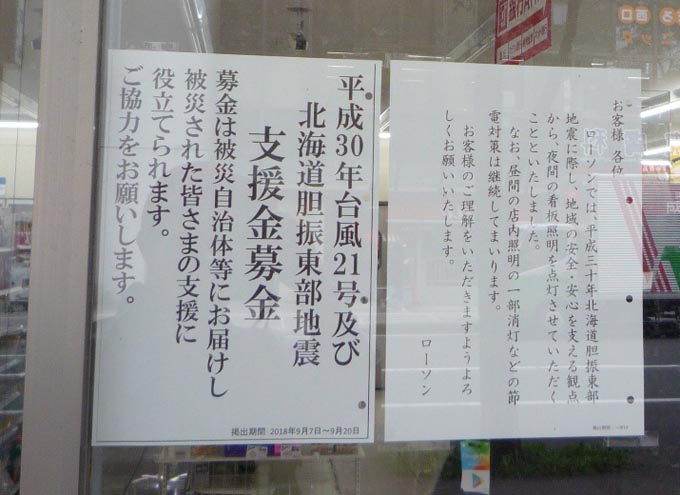 お客様 各位
ローソンでは、平成三十年北海道胆振東部
地震に際し、地域の安全・安心を支える観点
から、夜間の看板照明を点灯させていただく
ことといたしました。
なお、昼間の店内照明の一部消灯などの節
電対策は継続してまいります。
お客様のご理解をいただきますようよろ
しくお願いいたします。
ローソン
掲出期間
平成30年台風21号及び
北海道胆振東部地震
支援金募金
募金は被災自治体等にお届けし
被災された皆さまの支援に
役立てられます。
ご協力をお願いします。
掲出期間 2018年9月7日～9月20日